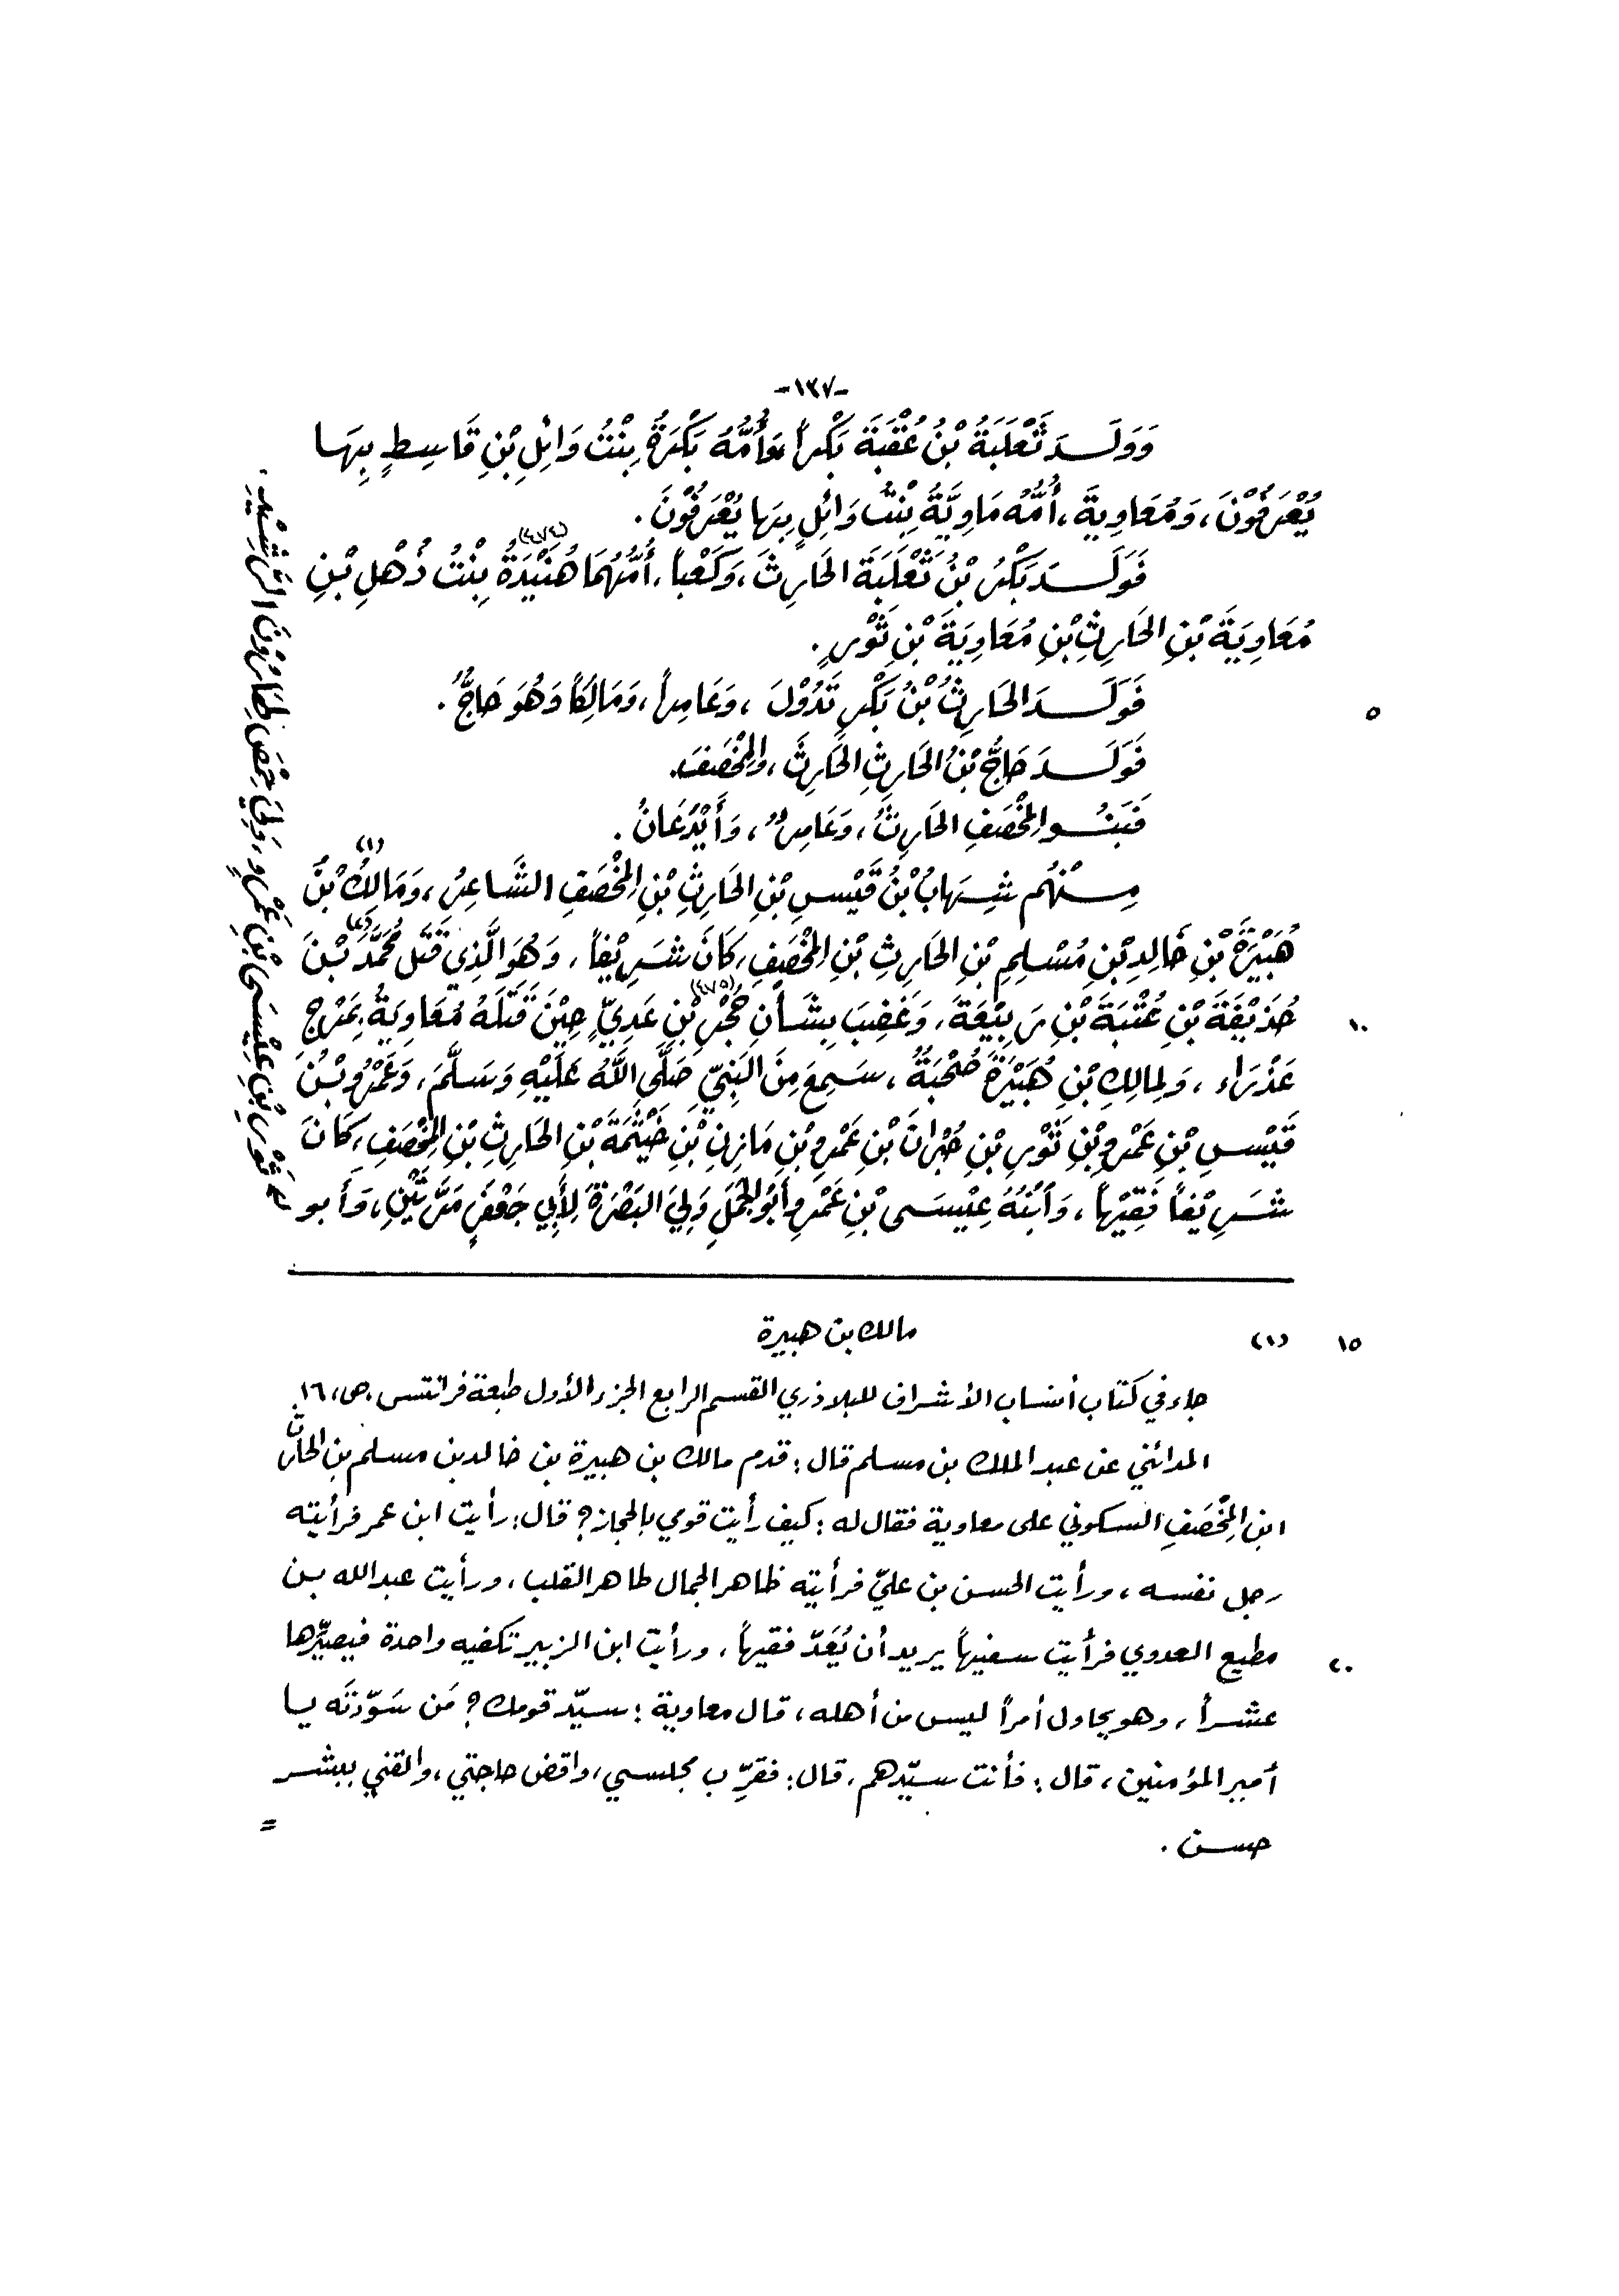 -١٣٧-
وَوَلَـدَ ثَعْلَبَةُ بْنُ عُقْبَةَ بَكْراً وَأُمُّهُ بَكْرَةُ بِنْتُ وَائِلِ بْنِ قَاسِطٍ بِهَا
يُعْرَفُوْنَ، وَمُعَاوِيَةَ، أُمُّهُ مَاوِيَّةُ بِنْتُ وَائِلٍ بِهَا يُعْرَفُوْنَ.
فَوَلَـدَ بَكْرُ بْنُ ثَعْلَبَةَ الحَارِثَ، وَكَعْباً، أُمُّهُمَا هُنَيْدَةُ (٤٧٤) بِنْتُ ذُهْلِ بْنِ
مُعَاوِيَةَ بْنِ الحَارِثِ بْنِ مُعَاوِيَةَ بْنِ ثَوْرٍ.
فَوَلَـدَ الحَارِثُ بْنُ بَكْرٍ تَدُوْلَ، وَعَامِراً، وَمَالِكاً وَهُوَ حَاجُّ.
٥
فَوَلَـدَ حَاجُّ بْنُ الحَارِثِ الحَارِثَ، وَالمِخْصَفَ.
فَبَنُـو المِخْصَفِ الحَارِثُ، وَعَامِرٌ، وَأَيْدَعَانُ.
مِـنْهُم شِهَابُ بْنُ قَيْسِ بْنِ الحَارِثِ بْنِ المِخْصَفِ الشَّاعِرُ، وَمَالِكُ (١) بْنُ
هُبَيْرَةَ بْنِ خَالِدِ بْنِ مُسْلِمِ بْنِ الحَارِثِ بْنِ المِخْصَفِ، كَانَ شَرِيْفاً، وَهُوَ الَّذِي قَتَلَ مُحَمَّدَ (٢) بْنَ
حُذَيْفَةَ بْنِ عُتْبَةَ بْنِ رَبِيْعَةَ، وَغَضِبَ بِشَأْنِ حُجْرِ (٤٧٥) بْنِ عَدِيٍّ حِيْنَ قَتَلَهُ مُعَاوِيَةُ بِمَرْجِ
١٠
عَذْرَاء، وَلِمالِكِ بْنِ هُبَيْرَةَ صُحْبَةٌ، سَمِعَ مِنَ النَّبِيّ صَلَّى اللَّهُ عَلَيْهِ وَسَلَّمَ، وَعَمْرُو بْنُ
قَيْسِ بْنِ عَمْرِو بْنِ ثَوْرِ بْنِ خُمْرَانَ بْنِ عَمْرِو بْنِ مَازِنِ بْنِ خَيْثَمَةَ بْنِ الحَارِثِ بْنِ المِخْصَفِ، كَانَ
شَرِيْفاً فَقِيْهاً، وَابْنُهُ عِيْسَى بْنِ عَمْرِو أَبُو الجَمَلِ وَلِيَ البَصْرَةَ لِأَبِي جَعْفَرٍ مَرَّتَيْنِ، وَأَبو
ثَوْرِ بْنِ عِيْسَى بْنِ عَمْرٍو، وَلِيَ حِمْصَ لِهَارُوْنَ الرَّشِيْدِ.
(١) مالك بن هبيرة
١٥
جاء في كتاب أنساب الأشراف للبلاذري القسم الرابع الجزء الأول طبعة فرانتس، ص، ١٦.
المدائني عن عبد الملك بن مسلم قال: قدم مالك بن هبيرة بن خالد بن مسلم بن الحارث
ابن المِخْصَفِ السكوني على معاوية فقال له: كيف رأيت قومي بالحجاز؟ قال: رأيت ابن عمر فرأيته
رجل نفسه، ورأيت الحسن بن عليّ فرأيته ظاهر الجمال طاهر القلب، ورأيت عبدالله بـن
مطيع العدوي فرأيت سفيهاً يريد أن يُعَدّ فقيهاً، ورأيت ابن الزبير تكفيه واحدة فيصيّرها
٢٠
عشراً، وهو يحاول أمراً ليس من أهله، قال معاوية: سيّد قومك؟ مَن سَوّدتَه يـا
أمير المؤمنين، قال: فأنت سيّدهم، قال: فقرِّب مجلسي، واقض حاجتي، والقني ببشر
حسن.
=